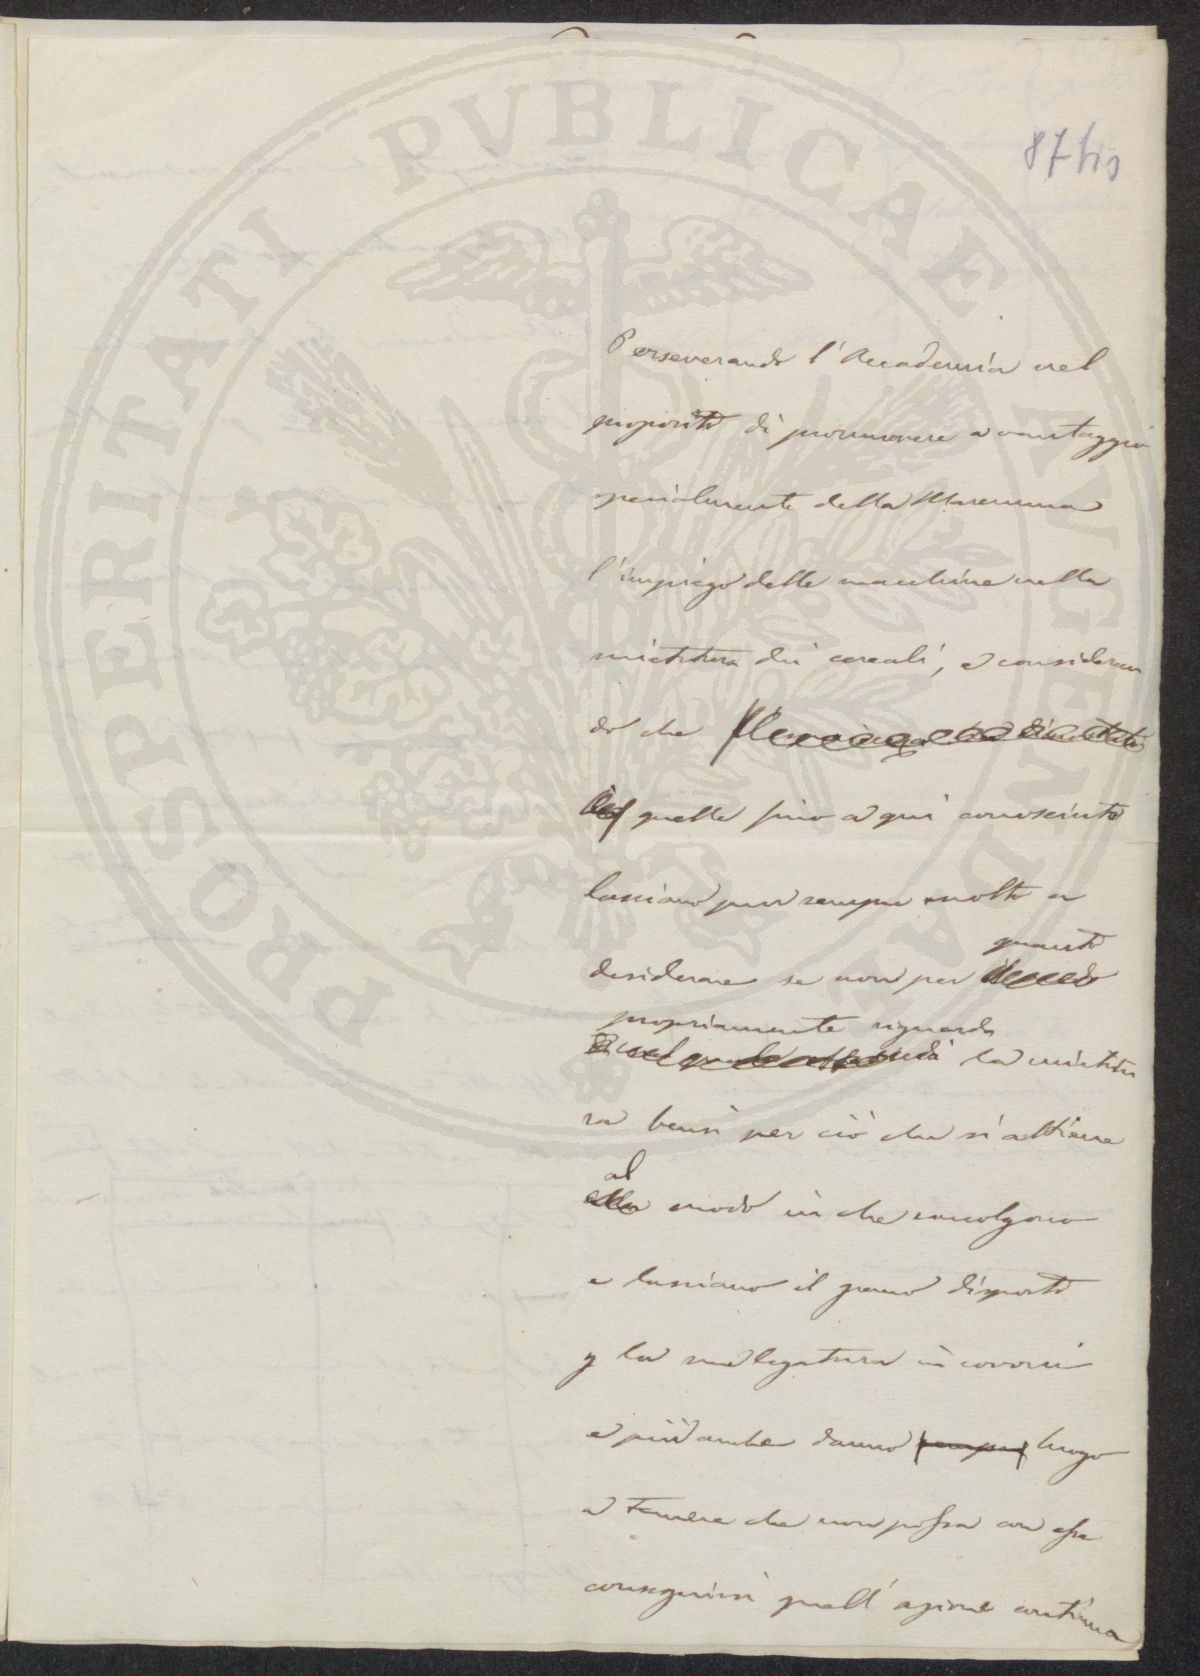 PROSPERITATI PVBLICAE AVGENDAE
87 bis
Perseverando l'Accademia nel
proposito di promuovere a vantaggio
specialmente della Maremma
l'impiego delle macchine nella
mietitura dei cereali, e consideran
do che
quelle fino a qui conosciute
lasciano pur sempre molto a
desiderare se non per quanto
propriamente riguarda
la mietitu
ra bensì per ciò che si attiene
al modo in che raccolgono
e lasciano il grano disposto
p la sua legatura in covoni
e più anche danno luogo
a temere che non possa con esse
conseguirsi quell'azione continua